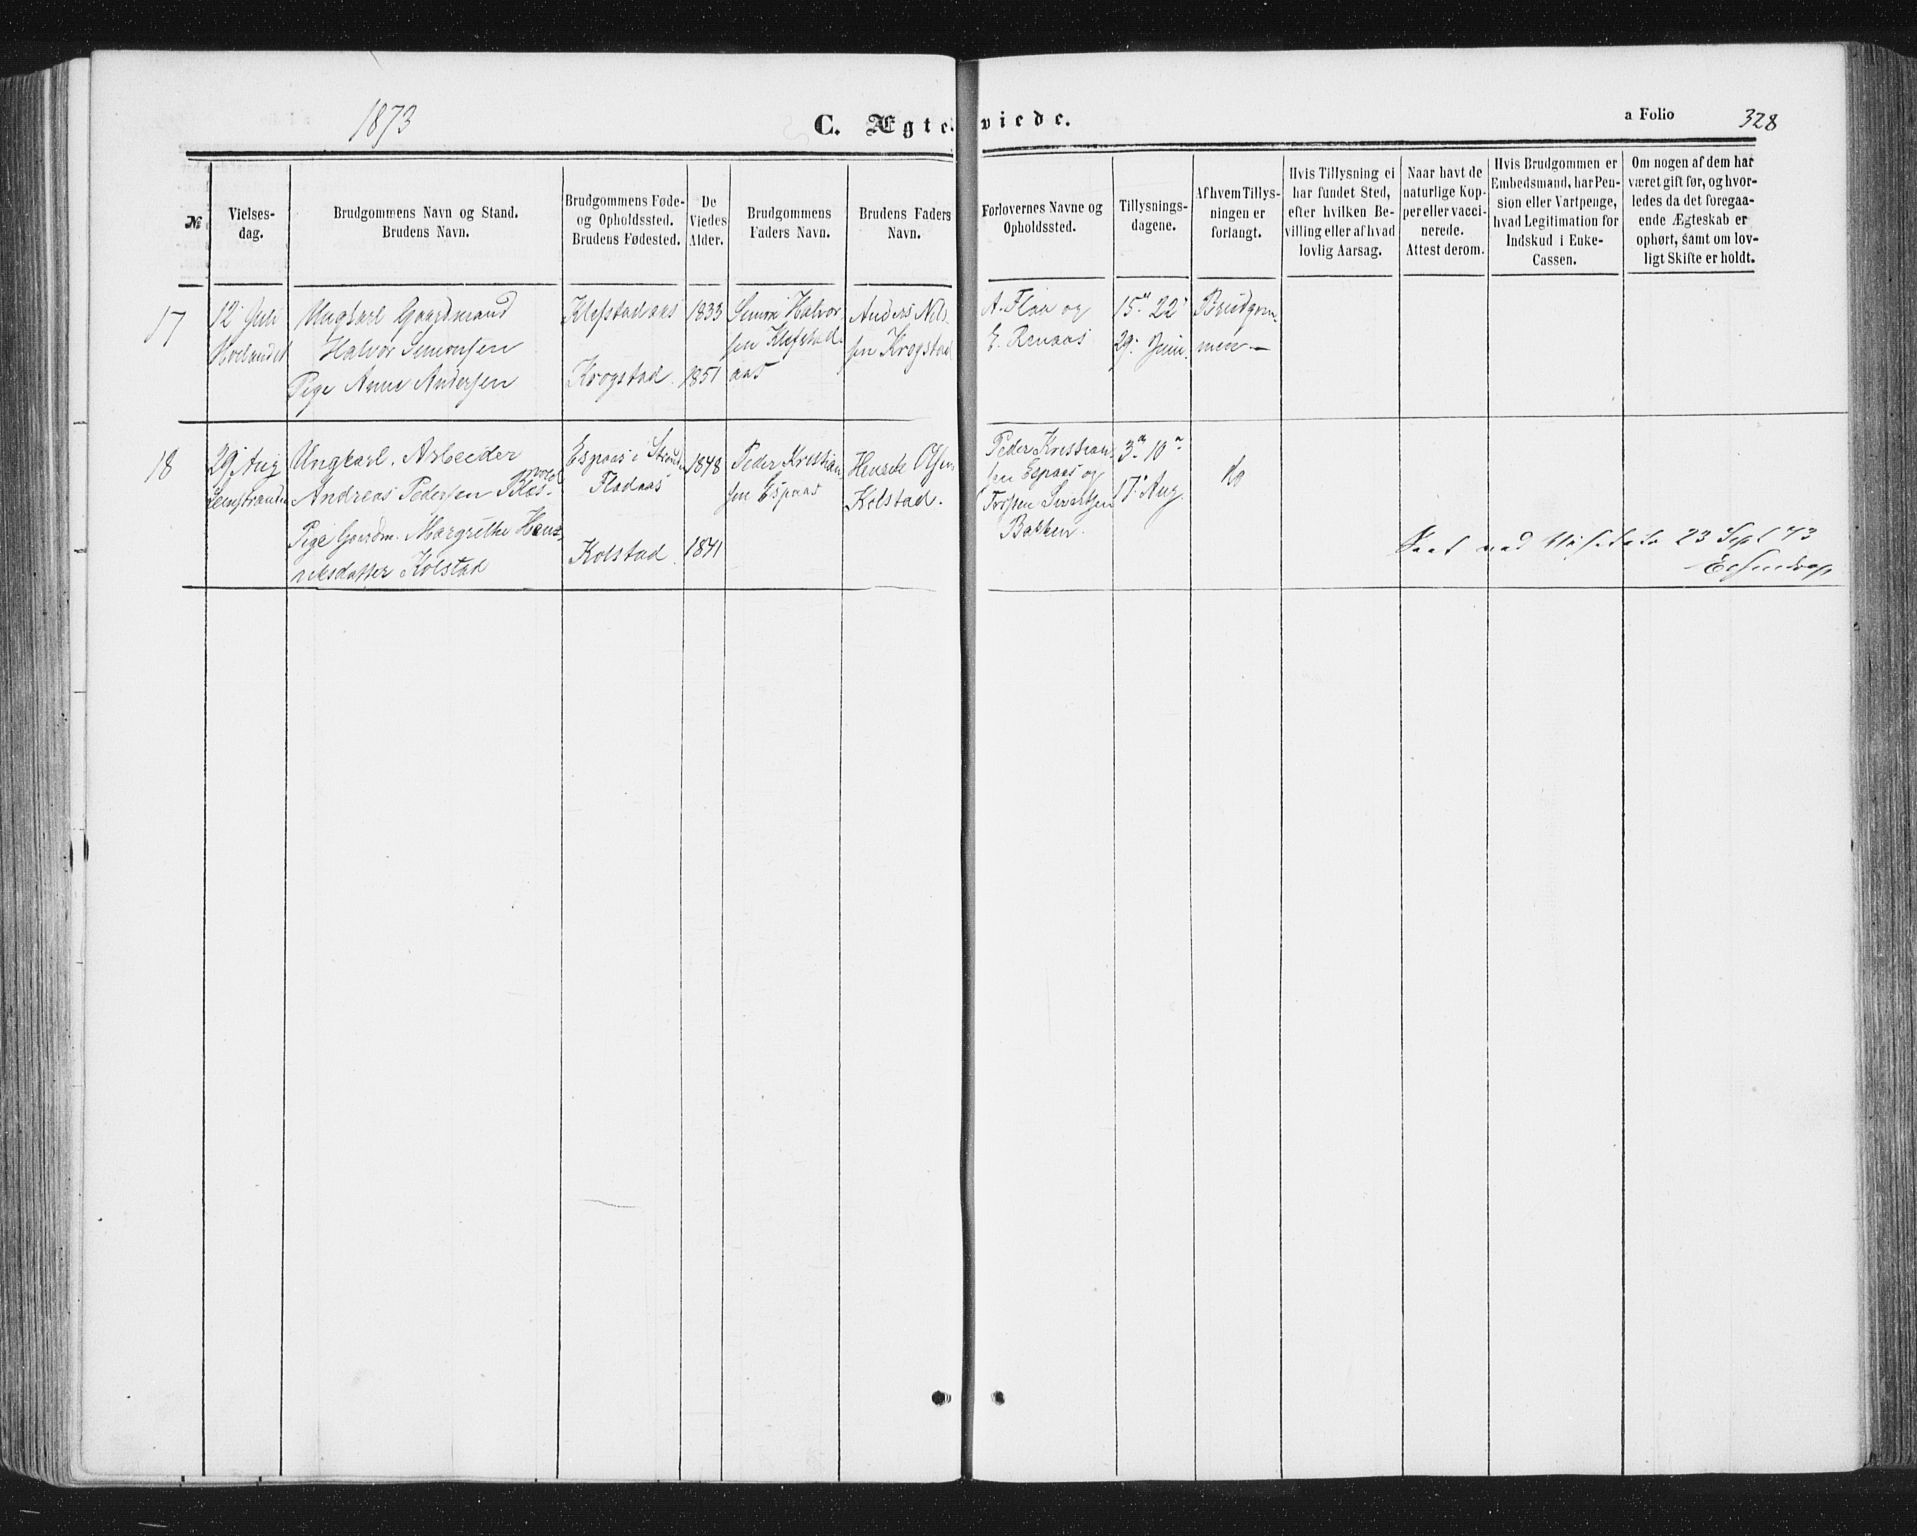 1873
C. Ægte-
viede.
a Folio
328
№
Vielses-
dag.
Brudgommens Navn og Stand.
Brudens Navn.
Brudgommens Føde-
og Opholdssted.
Brudens Fødested.
De
Viedes
Alder.
Brudgommens
Faders Navn.
Brudens Faders
Navn.
Forlovernes Navne og
Opholdssted.
Tillysnings-
dagene.
Af hvem Tillys-
ningen er
forlangt.
Hvis Tillysning ei
har fundet Sted,
efter hvilken Be-
villing eller af hvad
lovlig Aarsag.
Naar havt de
naturlige Kop-
per eller vacci-
nerede.
Attest derom.
Hvis Brudgommen er
Embedsmand, har Pen-
sion eller Vartpenge,
hvad Legitimation for
Indskud i Enke-
Cassen.
Om nogen af dem har
været gift før, og hvor-
ledes da det foregaa-
ende Ægteskab er
ophørt, samt om lov-
ligt Skifte er holdt.
17
12 Juli
Ungkarl Gaardmand
Halvor Simonsen
Pige Anne Andersen
Klefstadaas
Krogstad
1833
1851
Simon Halvor
sen Klefstad
aas
Anders Nil-
sen Krogstad
A. Floa og
E. Renaas
15" 22"
29. Juni
Brudgom-
men
18
29 Aug
Ungkarl. Arbeider
Andreas Pedersen
Pige Gaardm. Margrethe Hen-
riksdatter Kolstad
Espaas i
Flodaas
Kolstad
1848
1841
Peder Kristian
sen Espaas
Henrik Olsen
Kolstad.
Peder Kristian
sen Espaas og
Sivertsen
Bakken.
3" 10"
17" Aug.
do
Seet ved Visitats 23 Sept 73